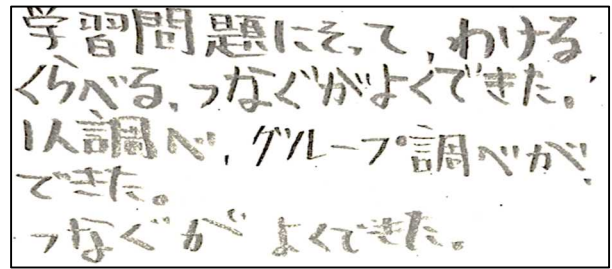 学習問題にそって、わける
くらべる、つなぐがよくできた。
1人調べ、グループ調べが、
できた。
つなぐが よくできた。